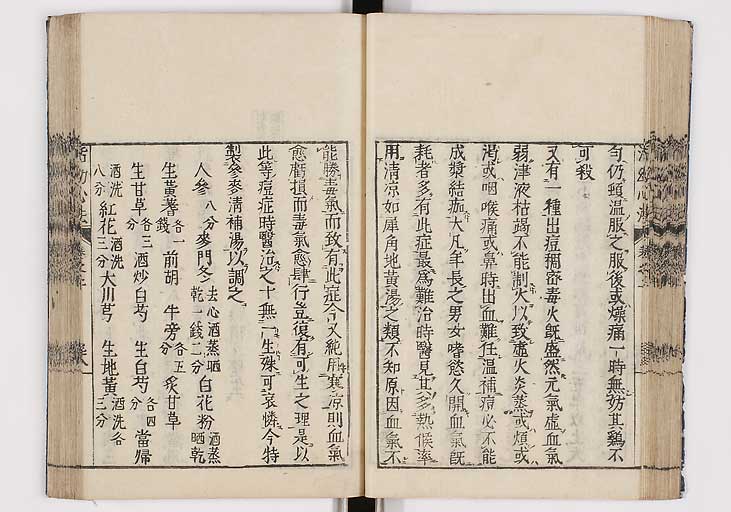 勻仍頓溫服之服後或燥痛一時無妨其鷄不
可殺
又有一種出痘稠密毒火旣盛然元氣虛血氣
弱津液枯竭不能制火以致虛火炎蒸或煩或
渴或咽喉痛或鼻時出血難任溫補痘必不能
成漿結痂大凡年長之男女嗜慾久開血氣旣
耗者多有此症最爲難治時醫見其多熱候率
用淸凉如犀角地黃湯之類不知原因血氣不
能勝毒氣而致有此症今又純用寒凉則血氣
愈虧損而毒氣愈肆行豈復有可生之理是以
此等痘症時醫治之十無一生殊可哀憐今特
製參麥淸補湯以調之
人參 八分 麥門冬 去心酒蒸晒乾一錢二分 白花粉 酒蒸晒乾
生黃蓍 各一錢 前胡 牛旁 各五分 炙甘草
生甘草 各三分 酒炒白芍 生白芍 各四分 當歸
酒洗八分 紅花 酒洗三分 大川芎 生地黃 酒洗各三分